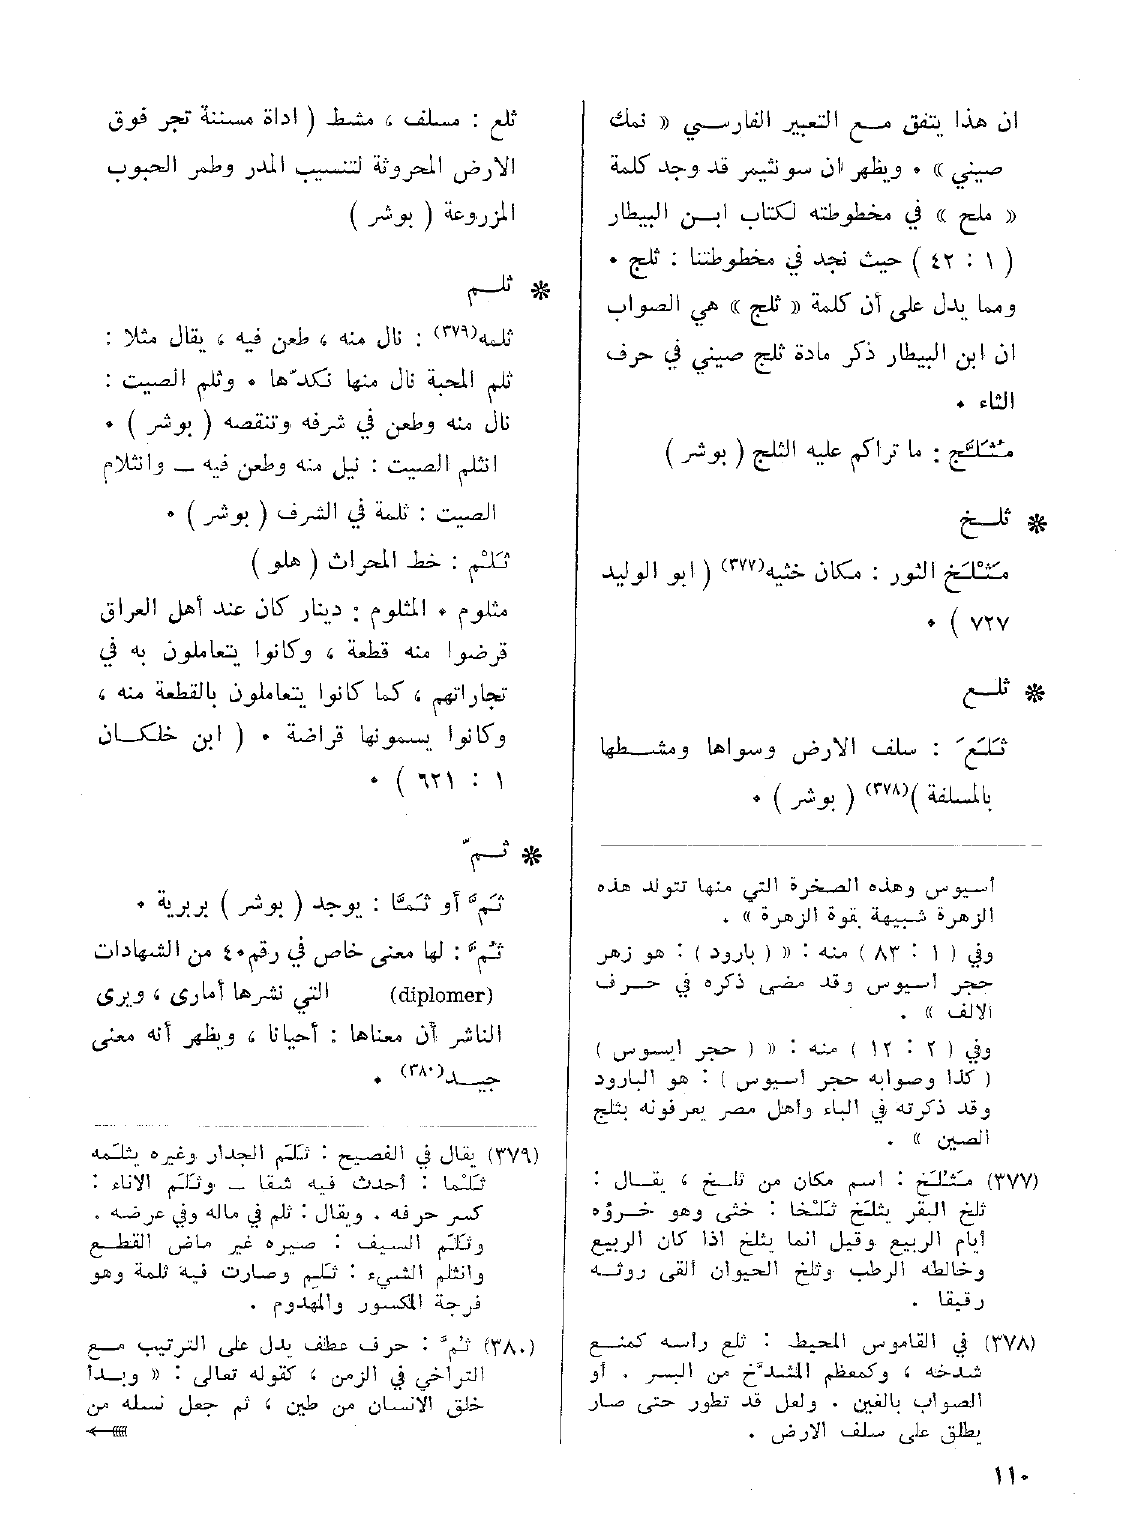 ان هذا يتفق مع التعبير الفارسي « نمك
صيني » • ويظهر ان سونثيمر قد وجد كلمة
« ملح » في مخطوطته لكتاب ابن البيطار
( ١ : ٤٢ ) حيث نجد في مخطوطتنا : ثلج •
ومما يدل على أن كلمة « ثلج » هي الصواب
ان ابن البيطار ذكر مادة ثلج صيني في حرف
الثاء •
مُثَلَّج : ما تراكم عليه الثلج ( بوشر )
❋ ثلخ
مَثْلَخ الثور : مكان خثيه(٣٧٧) ( ابو الوليد
٧٢٧ ) •
❋ ثلع
ثَلَعَ : سلف الارض وسواها ومشطها
بالمسلفة )(٣٧٨) ( بوشر ) •
أسيوس وهذه الصخرة التي منها تتولد هذه
الزهرة شبيهة بقوة الزهرة » .
وفي ( ١ : ٨٣ ) منه : « ( بارود ) : هو زهر
حجر أسيوس وقد مضى ذكره في حرف
الالف » .
وفي ( ٢ : ١٢ ) منه : « ( حجر ايسوس )
( كذا وصوابه حجر أسيوس ) : هو البارود
وقد ذكرته في الباء وأهل مصر يعرفونه بثلج
الصين » .
(٣٧٧) مَثْلَخ : اسم مكان من ثلخ ، يقال :
ثلخ البقر يثلخ ثَلْخا : خثى وهو خرؤه
أيام الربيع وقيل انما يثلخ اذا كان الربيع
وخالطه الرطب وثلخ الحيوان ألقى روثه
رقيقا .
(٣٧٨) في القاموس المحيط : ثلع رأسه كمنع
شدخه ، وكمعظم المشدَّخ من البسر . أو
الصواب بالغين . ولعل قد تطور حتى صار
يطلق على سلف الارض .
ثلع : مسلف ، مشط ( اداة مسننة تجر فوق
الارض المحروثة لتنسيب المدر وطمر الحبوب
المزروعة ( بوشر )
❋ ثلم
ثلمه(٣٧٩) : نال منه ، طعن فيه ، يقال مثلا :
ثلم المحبة نال منها نكدّها • وثلم الصيت :
نال منه وطعن في شرفه وتنقصه ( بوشر ) •
انثلم الصيت : نيل منه وطعن فيه — وانثلام
الصيت : ثلمة في الشرف ( بوشر ) •
ثَلْم : خط المحراث ( هلو )
مثلوم • المثلوم : دينار كان عند أهل العراق
قرضوا منه قطعة ، وكانوا يتعاملون به في
تجاراتهم ، كما كانوا يتعاملون بالقطعة منه ،
وكانوا يسمونها قراضة • ( ابن خلكان
١ : ٦٢١ ) •
❋ ثمّ
ثَمَّ أو ثَمَّا : يوجد ( بوشر ) بربرية •
ثُمَّ : لها معنى خاص في رقم ٤٠ من الشهادات
(diplomer) التي نشرها أمارى ، ويرى
الناشر أن معناها : أحيانا ، ويظهر أنه معنى
جيد(٣٨٠) •
(٣٧٩) يقال في الفصيح : ثَلَم الجدار وغيره يثلمه
ثَلْما : أحدث فيه شقا — وثَلَم الاناء :
كسر حرفه . ويقال : ثلم في ماله وفي عرضه .
وثَلَم السيف : صيره غير ماض القطع
وانثلم الشيء : ثَلِم وصارت فيه ثلمة وهو
فرجة المكسور والمهدوم .
(٣٨٠) ثُمَّ : حرف عطف يدل على الترتيب مع
التراخي في الزمن ، كقوله تعالى : « وبدأ
خلق الانسان من طين ، ثم جعل نسله من
١١٠